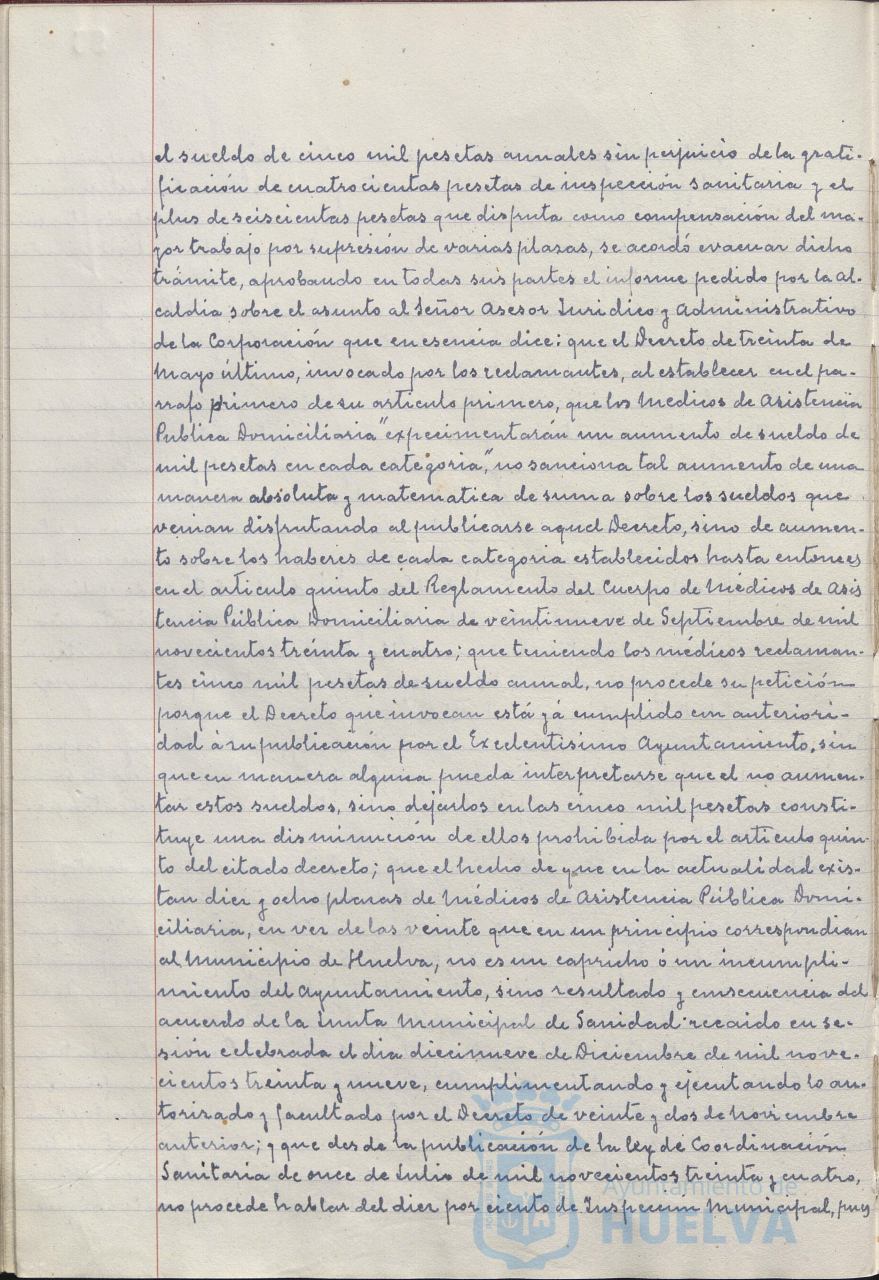 el sueldo de cinco mil pesetas annales sin perjuicio de la grati-
ficación de cuatrocientas pesetas de inspección sanitaria y el
plus de seiscientas pesetas que disfruta como compensación del ma-
yor trabajo por supresión de varias plazas, se acordó evacuar dicho
trámite, aprobando en todas sus partes el informe pedido por la Al-
caldia sobre el asunto al Señor Asesor Juridico y Administrativo
de la Corporación que en esencia dice: que el Decreto de treinta de
Mayo último, invocado por los reclamantes, al establecer en el pa-
rrafo primero de su articulo primero, que los Medicos de Asistencia
Publica Domiciliaria "experimentarán un aumento de sueldo de
mil pesetas en cada categoria", no sanciona tal aumento de una
manera absoluta y matematica de suma sobre los sueldos que
venian disfrutando al publicarse aquel Decreto, sino de aumen-
to sobre los haberes de cada categoria establecidos hasta entonces
en el articulo quinto del Reglamento del Cuerpo de Médicos de Asis
tencia Pública Domiciliaria de veintinueve de Septiembre de mil
novecientos treinta y cuatro; que teniendo los médicos reclaman-
tes cinco mil pesetas de sueldo annal, no procede su petición
porque el Decreto que invocan está yá cumplido con anteriori-
dad á su publicación por el Excelentisimo Ayuntamiento, sin
que en manera alguna pueda interpretarse que el no aumen-
tar estos sueldos, sino dejarlos en las cinco mil pesetas consti-
tuye una disminución de ellos prohibida por el articulo quin-
to del citado decreto; que el hecho de que en la actualidad exis-
tan diez y ocho plazas de Médicos de Asistencia Pública Domi-
ciliaria, en vez de las veinte que en un principio correspondian
al Municipio de Huelva, no es un capricho ó un incumpli-
miento del Ayuntamiento, sino resultado y consecuencia del
acuerdo de la Junta Municipal de Sanidad recaido en se-
sión celebrada el dia diecinueve de Diciembre de mil nove-
cientos treinta y nueve, cumplimentando y ejecutando lo au-
torizado y facultado por el Decreto de veinte y dos de Noviembre
anterior; y que desde la publicación de la ley de Coordinación
Sanitaria de once de Julio de mil novecientos treinta y cuatro,
no procede hablar del diez por ciento de Inspección Municipal, pues
Ayuntamiento de
HUELVA